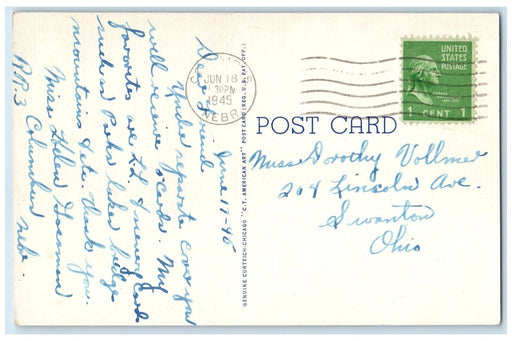 June 17-45
Dear Friend
Under separate cover you
will receive cards. My
favorites are L.L. & scenery cards
such as Parks lakes bridges
mountains & etc. Thank you.
Miss Helen
RR 3 Columbus
Nebr.
JUN 18
1 30PM
1945
NEBR.
UNITED
STATES
POSTAGE
1 CENT 1
POST CARD
Miss Dorothy Vollmer
204 Lincoln Ave.
Swanton
Ohio
GENUINE CURTEICH-CHICAGO "C.T. AMERICAN ART" POST CARD (REG. U.S. PAT. OFF.)